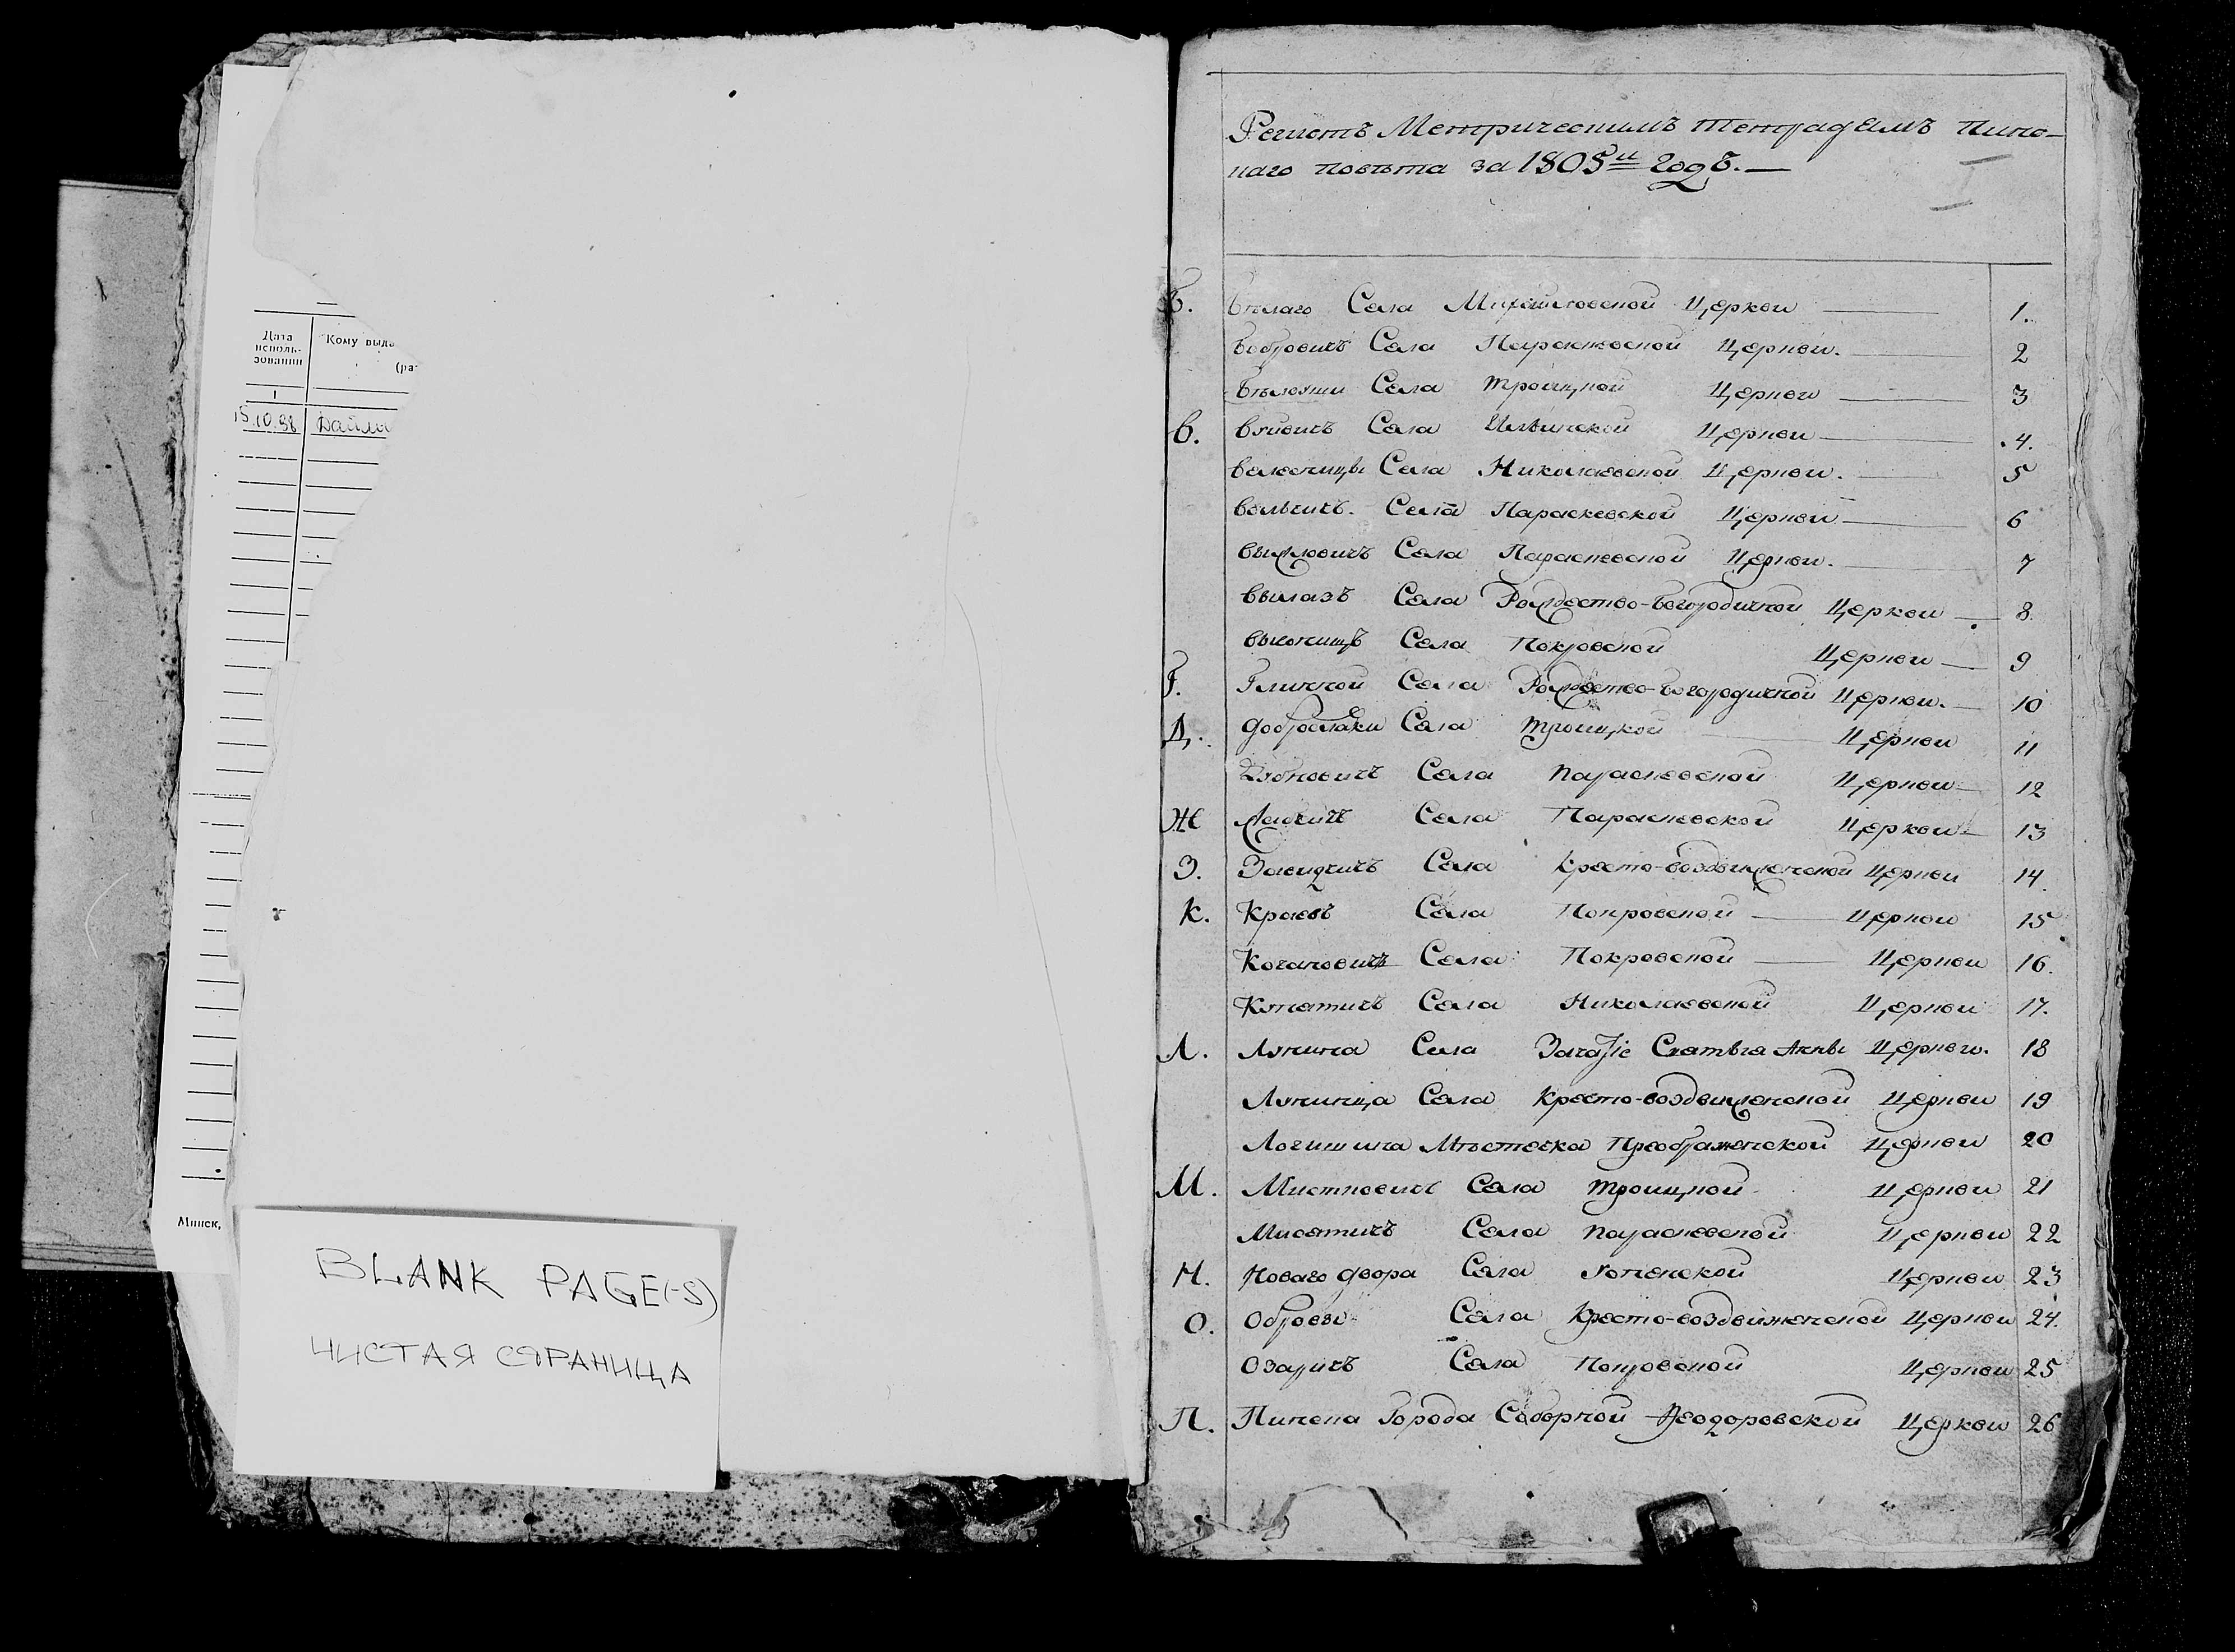 Дата
исполь-
зования
Кому выда
(ра
1
15.10.98
Минск,
BLANK PAGE(-S)
ЧИСТАЯ СТРАНИЦА
Регистъ Метрическимъ тетрадямъ Пинс-
каго повѣта за 1805й годъ.—
Б. Бѣлаго Села Михайловской Церкви 1.
Бобровичъ Села Параскевской Церкви. 2
Села Троицкой Церкви 3
В. Вуйвичъ Села Ильинской Церкви 4.
Села Николаевской Церкви. 5
Села Параскевской Церкви 6
Села Параскевской Церкви. 7
Вылазъ Села Рождество-Богородичной Церкви 8.
Села Покровской Церкви 9
Г. Глинной Села Рождество-Богородичной Церкви. 10
Д. Доброславки Села Троицкой Церкви 11
Села Параскевской Церкви 12
Ж Села Параскевской Церкви 13
З. Села Кресто-воздвиженской Церкви 14.
К. Краевъ Села Покровской Церкви 15
Кочановичъ Села Покровской Церкви 16.
Купятичъ Села Николаевской Церкви 17.
Л. Лунина Села Зачатіе Святыя Анны Церкви. 18
Лунинца Села Кресто-воздвиженской Церкви 19
Логишина Мѣстечка Преображенской Церкви 20
М. Мистковичъ Села Троицкой Церкви 21
Мисятичъ Села Параскевской Церкви 22
Н. Новаго двора Села Успенской Церкви 23
О. Обровы Села Кресто-воздвиженской Церкви 24.
Озаричъ Села Покровской Церкви 25
П. Пинска Города Соборной Ѳеодоровской Церкви 26